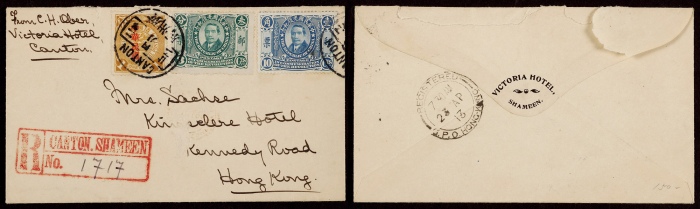 From C.H. Ober,
Victoria Hotel,
Canton.
CANTON
10
CANTON
Mrs. Sachse
Kingsclere Hotel
Kennedy Road
Hong Kong.
R
CANTON. SHAMEEN
No. 1717
REGISTERED
HONG KONG
23 AP
13
G.P.O.
VICTORIA HOTEL,
SHAMEEN.